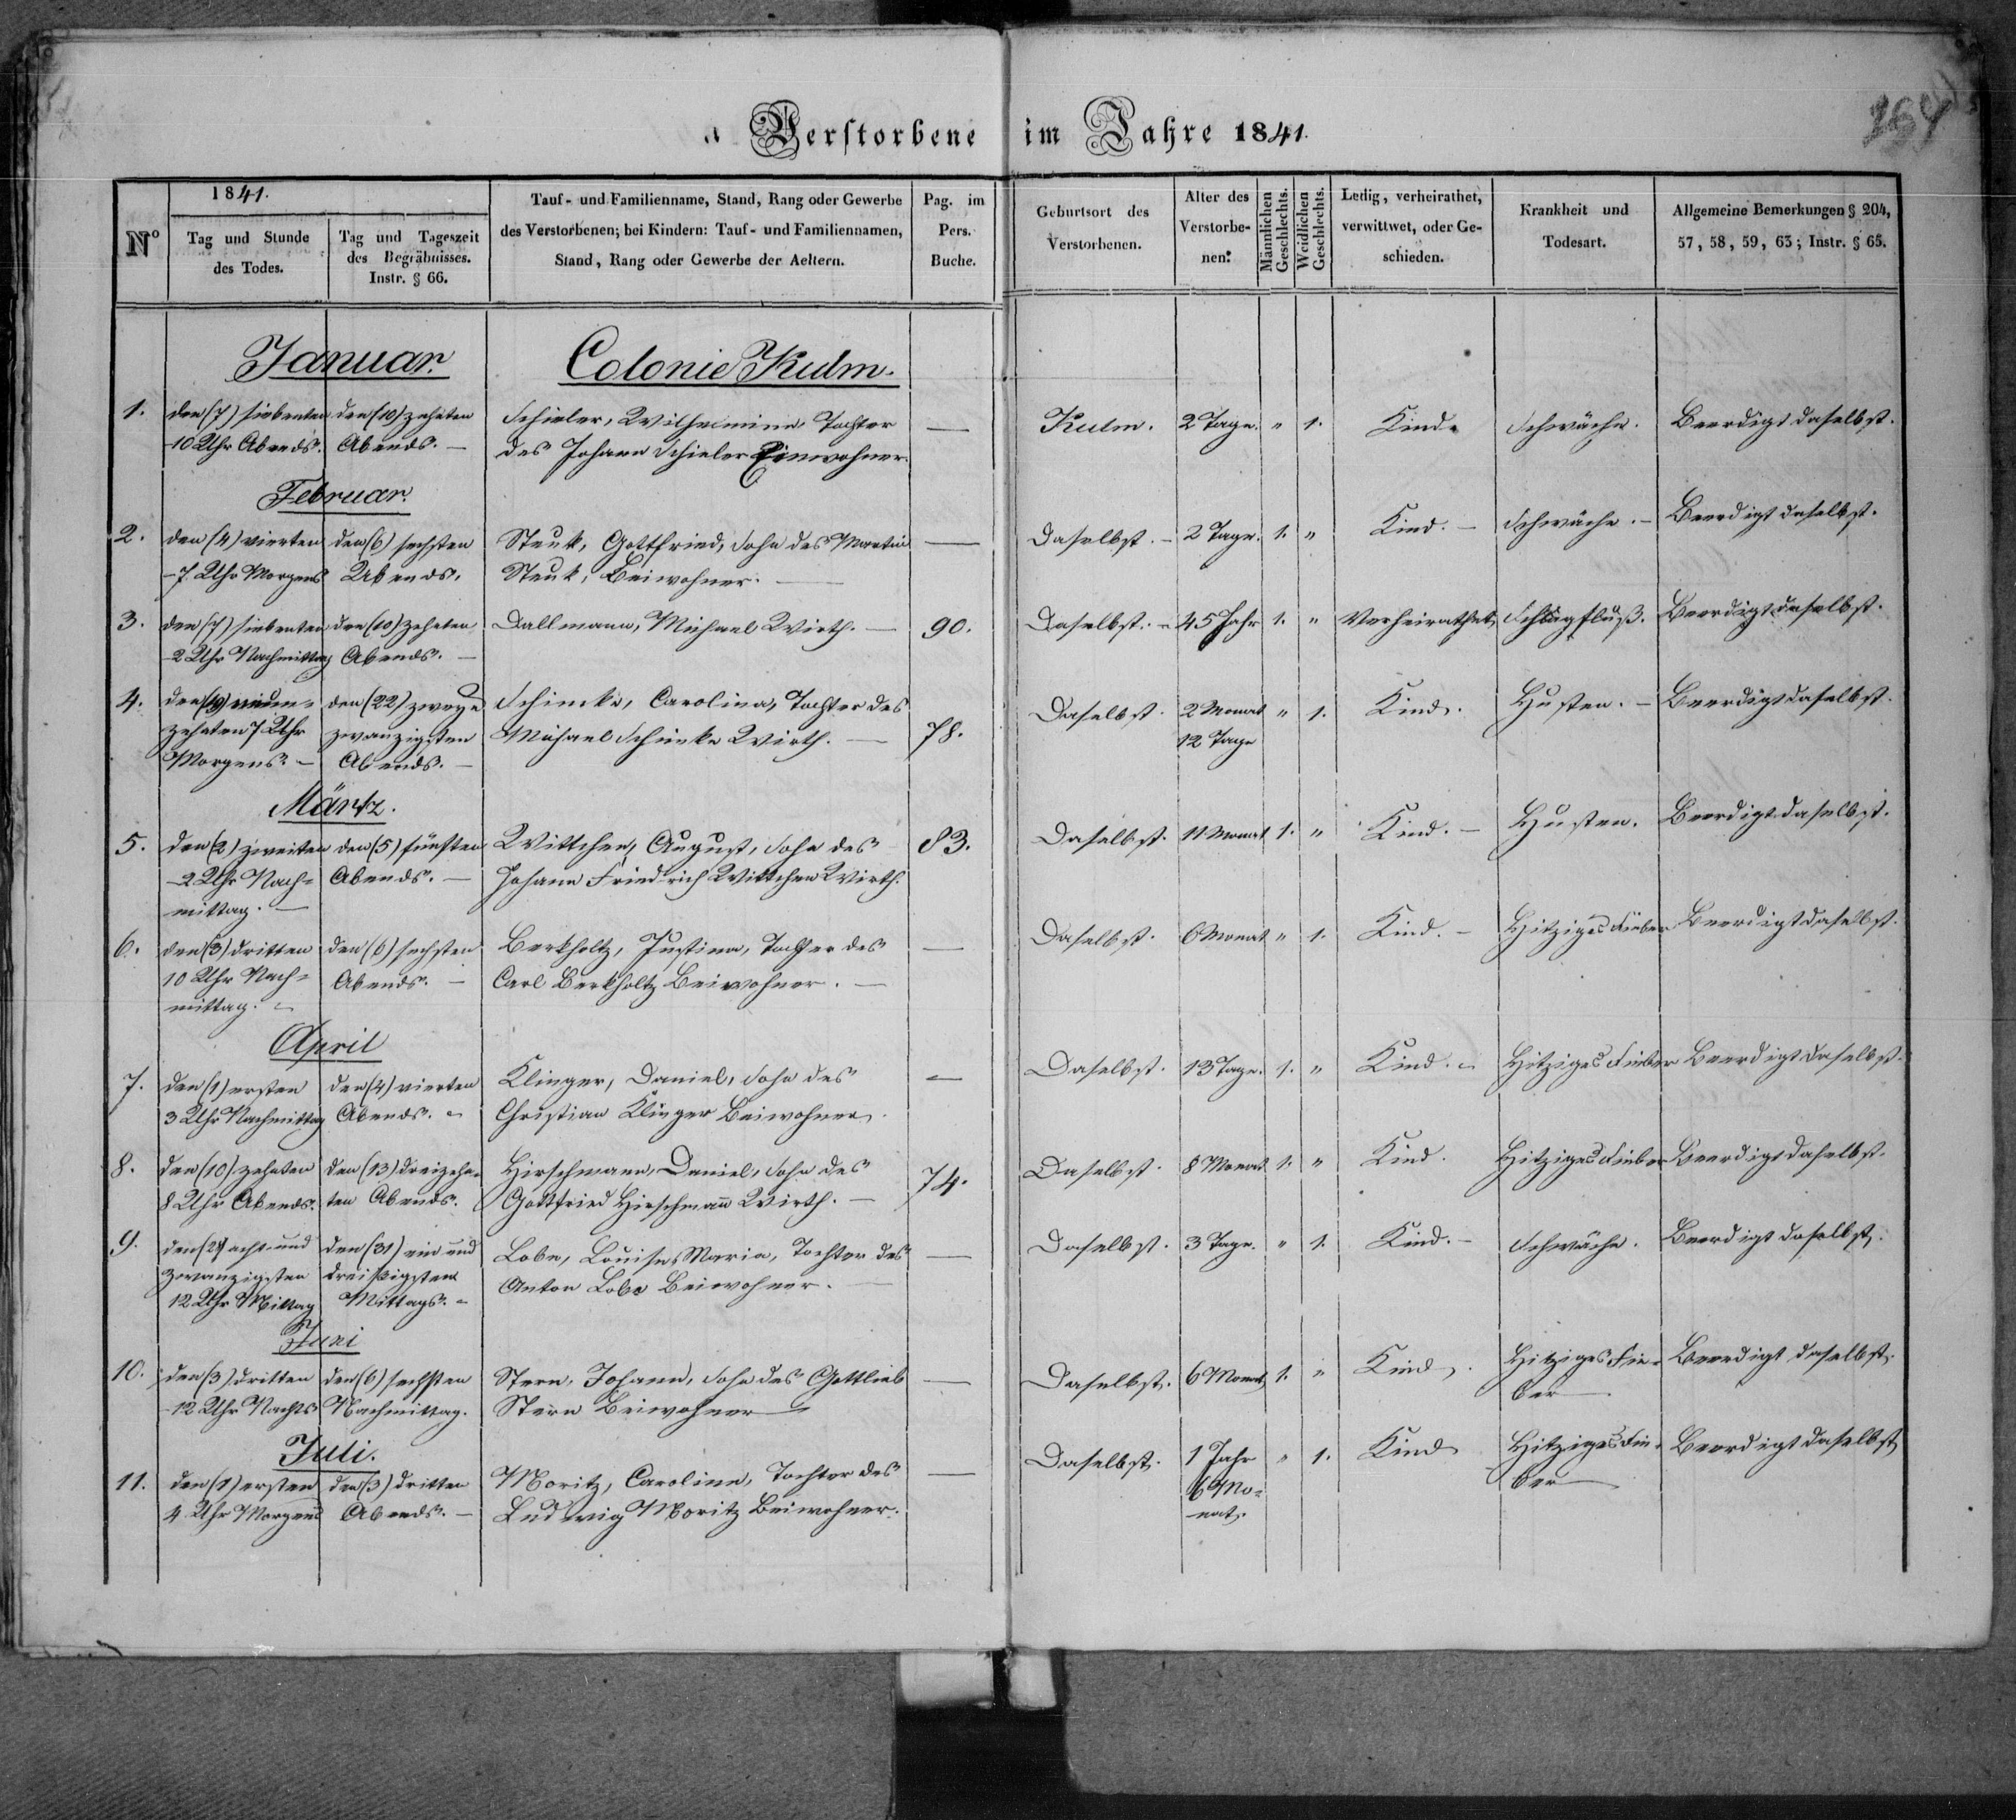 Verstorbene im Jahre 1841.
264
Nº
1841.
Tag und Stunde
des Todes.
Tag und Tageszeit
des Begräbnisses.
Instr. § 66.
Tauf- und Familienname, Stand, Rang oder Gewerbe
des Verstorbenen; bei Kindern: Tauf- und Familiennamen,
Stand, Rang oder Gewerbe der Aeltern.
Pag. im
Pers.
Buche.
Geburtsort des
Verstorbenen.
Alter des
Verstorbe-
nen.
Männlichen
Geschlechts.
Weiblichen
Geschlechts.
Ledig, verheirathet,
verwittwet, oder Ge-
schieden.
Krankheit und
Todesart.
Allgemeine Bemerkungen § 204,
57, 58, 59, 63; Instr. § 65.
Januar. Colonie Kulm.
1. den (7) siebenten den (10) zehnten Schieler, Wilhelmine, Tochter — Kulm. 2 Tage. " 1. Kind. Schwäche. Beerdigt daselbst.
10 Uhr Abends. Abends. — des Johann Schieler Einwohner.
Februar.
2. den (4) vierten den (6) sechsten Steuk, Gottfried, Sohn des Martin — Daselbst. — 2 Tage. 1. " Kind. — Schwäche. — Beerdigt daselbst.
- 7 Uhr Morgens Abends. Steuk, Beiwohner. —
3. den (7) siebenten den (10) zehnten Dallmann, Michael Wirth. — 90. Daselbst. — 45 Jahr 1. " Verheirathet, Schlagfluß. Beerdigt daselbst.
- 2 Uhr Nachmittag Abends. —
4. den (19) neun- den (22) zwey u Schimke, Carolina, Tochter des Daselbst. 2 Monat " 1. Kind. Husten. — Beerdigt daselbst.
zehnten 7 Uhr zwanzigsten Michael Schimke Wirth. — 78. 12 Tage
Morgens. — Abends. —
Märtz.
5. den (2) zweiten den (5) fünften Wittchen, August, Sohn des 83. Daselbst. 11 Monat 1. " Kind. — Husten. Beerdigt daselbst.
- 2 Uhr Nach= Abends. — Johann Friedrich Wittchen Wirth.
mittag. —
6. den (3) dritten den (6) sechsten Berkholtz, Justina, Tochter des — Daselbst. 6 Monat " 1. Kind. — Hitziges Fieber Beerdigt daselbst.
10 Uhr Nach= Abends. — Carl Berkholtz Beiwohner. —
mittag. —
April
7. den (1) ersten den (4) vierten Klinger, Daniel, Sohn des — Daselbst. 13 Tage. 1. " Kind. — Hitziges Fieber Beerdigt daselbst.
3 Uhr Nachmittag Abends. — Christian Klinger Beiwohner.
8. den (10) zehnten den (13) dreizehn- Hirschmann, Daniel, Sohn des 74. Daselbst. 8 Monat 1. " Kind. Hitziges Fieber Beerdigt daselbst.
8 Uhr Abends. ten Abends. Gottfried Hirschman̄ Wirth. —
9. den (28) acht und den (31) ein und Lobe, Louise Maria, Tochter des — Daselbst. 3 Tage. " 1. Kind. — Schwäche. Beerdigt daselbst.
zwanzigsten dreißigsten Anton Lobe Beiwohner. —
12 Uhr Mittag Mittags. —
Juni
10. den (3) dritten den (6) sechsten Stern, Johann, Sohn des Gottlieb — Daselbst. 6 Monat 1. " Kind. Hitziges Fie- Beerdigt daselbst.
- 12 Uhr Nachts Nachmittag. Stern Beiwohner — ber —
Juli.
11. den (1) ersten den (3) dritten Moritz, Caroline, Tochter des — Daselbst. 1 Jahr " 1. Kind Hitziges Fie- Beerdigt daselbst
4 Uhr Morgens Abends. — Ludwig Moritz Beiwohner. 6 Mo= ber —
nat.